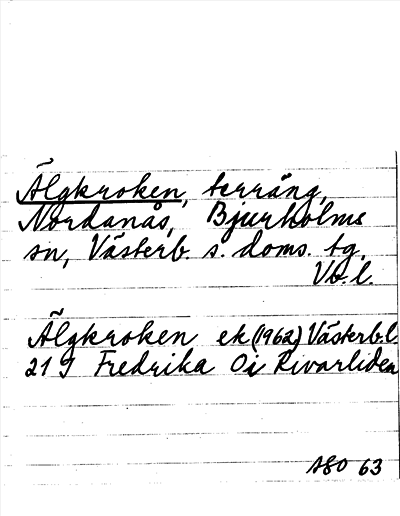 Älgkroken, terräng,
Nordanås, Bjurholms
sn, Västerb. s. doms. tg.
Vb.l.
Älgkroken ek (1962) Västerb.l
21 J Fredrika 0i Rivarliden
ASO 63